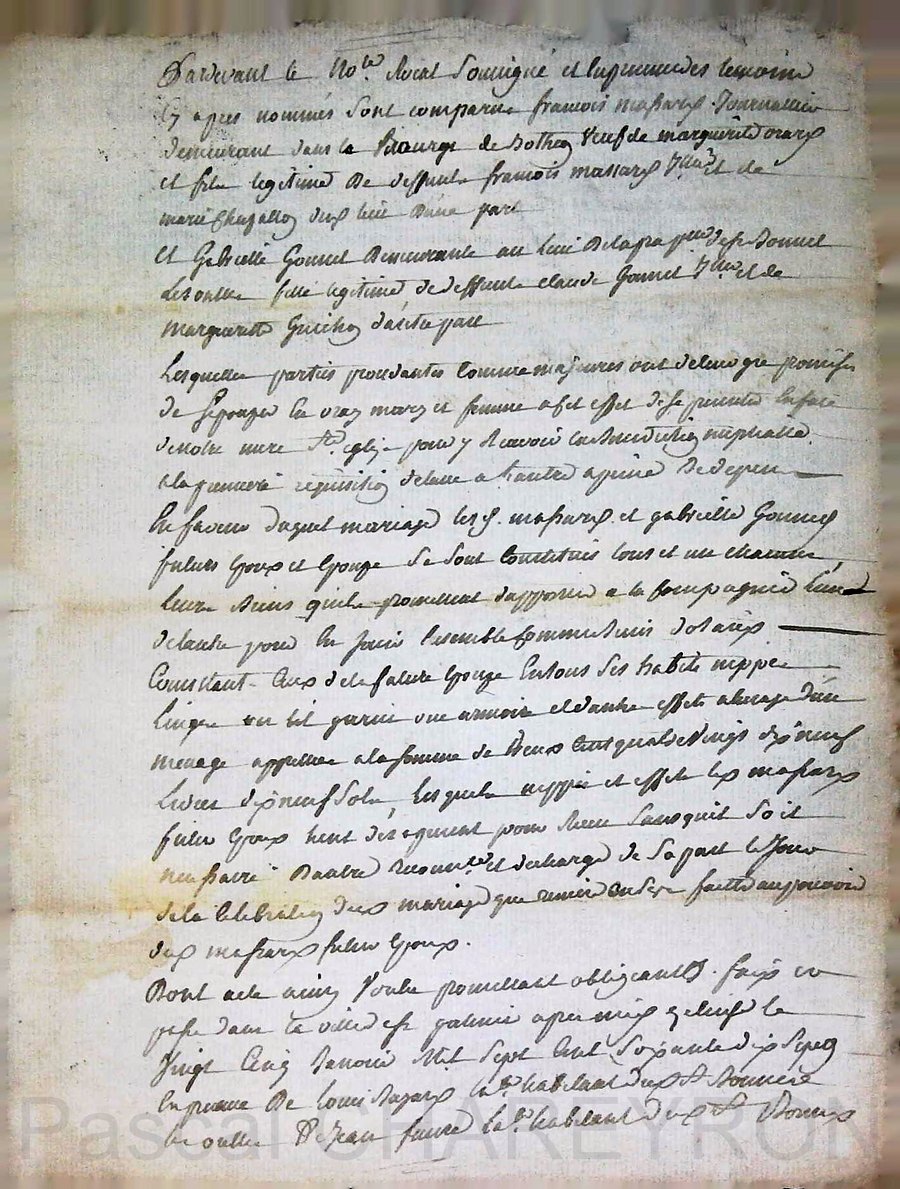 Pardevant le No.re Royal Soussigné et en presence des temoins
Cy apres nommés sont comparus françois massard Journallier
demeurant dans la de Botheon Veuf de margueritte
et fils legitime De deffunts françois massard et de
marie dud lieu D'une part
et Gabrielle Gonnet Demeurante au lieu De la de st Bonnet
Les oulles fille legitime de deffunts claude Gonnet et de
margueritte Guichon d'autre part
Lesquelles parties procedantes comme majeures ont de leur gré promises
de s'epouser en vray mary et femme a cet effet de se presenter en face
de notre mere Ste eglize pour y Recevoir la benediction nuptialle
a la premiere requisition de l'une a l'autre a peine De depens
En faveur duquel mariage les d. massard et gabrielle Gonnet
futurs Epoux et Epouze Se sont Constitués tous et un chacuns
leurs Biens qu'ils promettent d'apporter a la Compagnie l'un
de l'autre pour En Jouir Ensemble comme Biens dotaux
Consistant Ceux de la future Epouze En tous Ses habits nippes
linges un lit garni une armoire et d'autres effets a l'usage d'un
menage appretiés a la somme de Deux Cent quatre Vingt dix neuf
Livres dix neuf Sols, lesquels nippes et effets led massard
futur Epoux tient des a present pour Reçus Sans qu'il Soit
necessaire D'autre reconce et decharge de Sa part le Jour
de la Celebration dud mariage que remise En Sera faitte au pouvoir
dud massard futur Epoux.
Dont acte ainsy Voulu promettant obligeant &. fait et
passé dans la ville de st galmier apres midy le
Vingt Cinq Janvier Mil Sept Cent Soixante dix Sept
En presence De Louis habitant dud St Bonnet
les oulles & Jean faure habitant dud St Bonnet
Pascal CHAREYRON